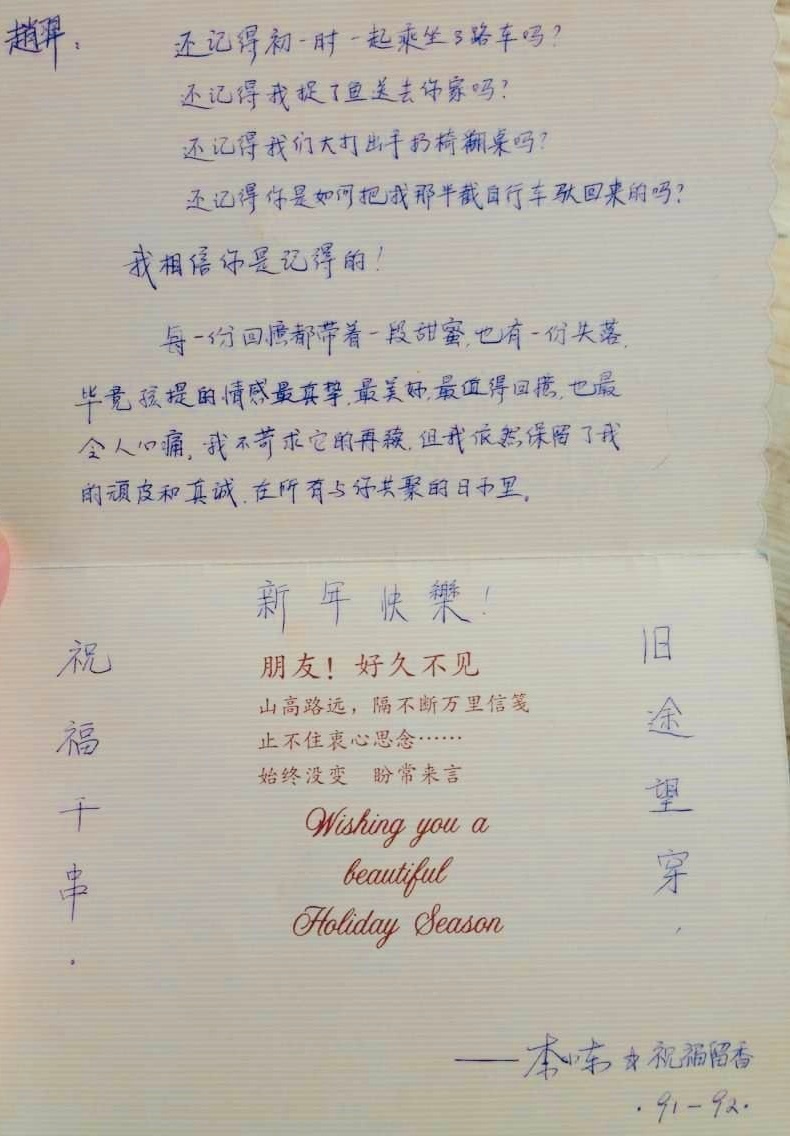 赵羿：
还记得初一时一起乘坐3路车吗？
还记得我捉了鱼送去你家吗？
还记得我们大打出手扔椅翻桌吗？
还记得你是如何把我那半截自行车驮回来的吗？
我相信你是记得的！
每一份回忆都带着一段甜蜜，也有一份失落，
毕竟孩提的情感最真挚，最美好，最值得回忆，也最
令人心痛，我不苛求它的再续，但我依然保留了我
的顽皮和真诚，在所有与你共聚的日子里。
新年快樂！
旧途望穿，
祝福千串。
朋友！好久不见
山高路远，隔不断万里信笺
止不住衷心思念……
始终没变 盼常来言
Wishing you a
beautiful
Holiday Season
——李小东 祝福留香
·91-92·